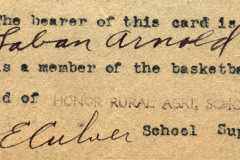 The bearer of this card is
Laban Arnold
is a member of the basketba
d of HONOR RURAL AGRI. SCHO
E Culver School Sup